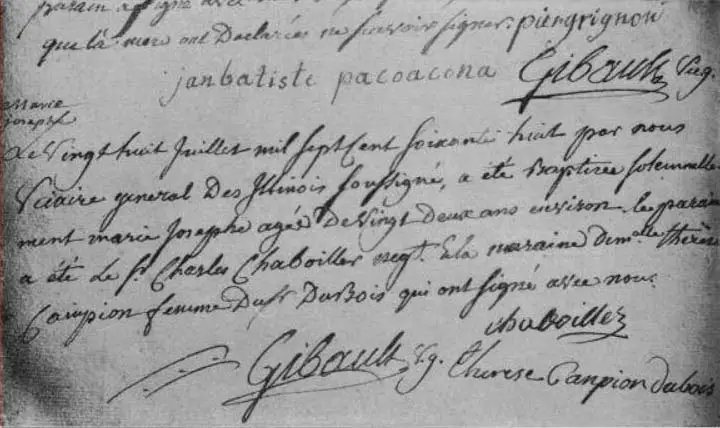 parain a signé avec
que la mere ont Declarées ne scavoir signer. piergrignon
janbatiste pacoacona Gibault V.g.
Marie
Joseph
Le vingt huit Juillet mil sept Cent soixante huit par nous
Vicaire general Des Illinois soussigné, a été Baptisée solemnelle
ment marie Josephe agée De vingt Deux ans environ. le parain
a été Le sr. Charles Chaboiller negt. & la maraine demlle. therèse
Campion femme Du sr DuBois qui ont signé avec nous.
chaboillez
Gibault V.g. therese Canpion dubois